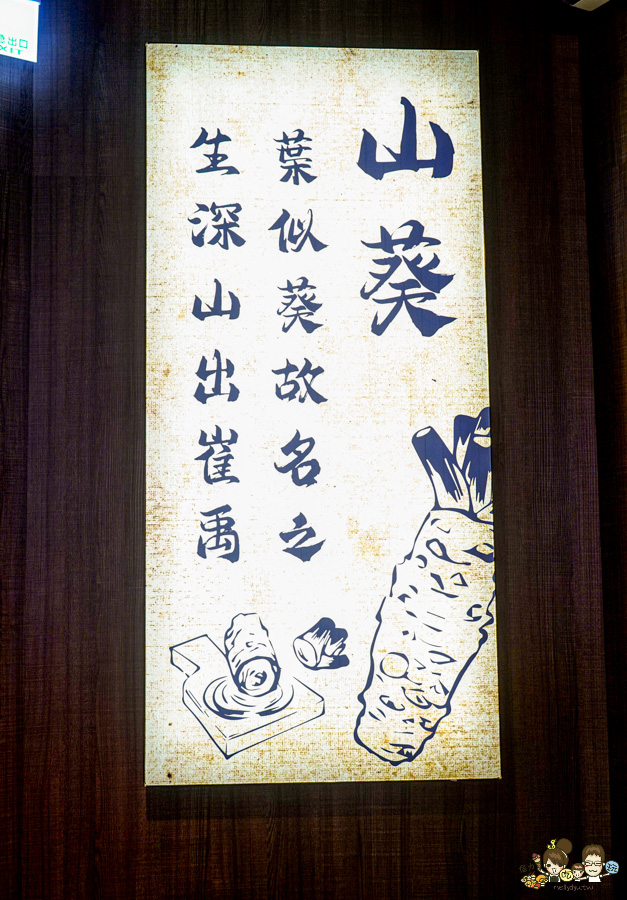 山葵
葉似葵故名之
生深山出崔禹
出口
EXIT
nellydyu.tw